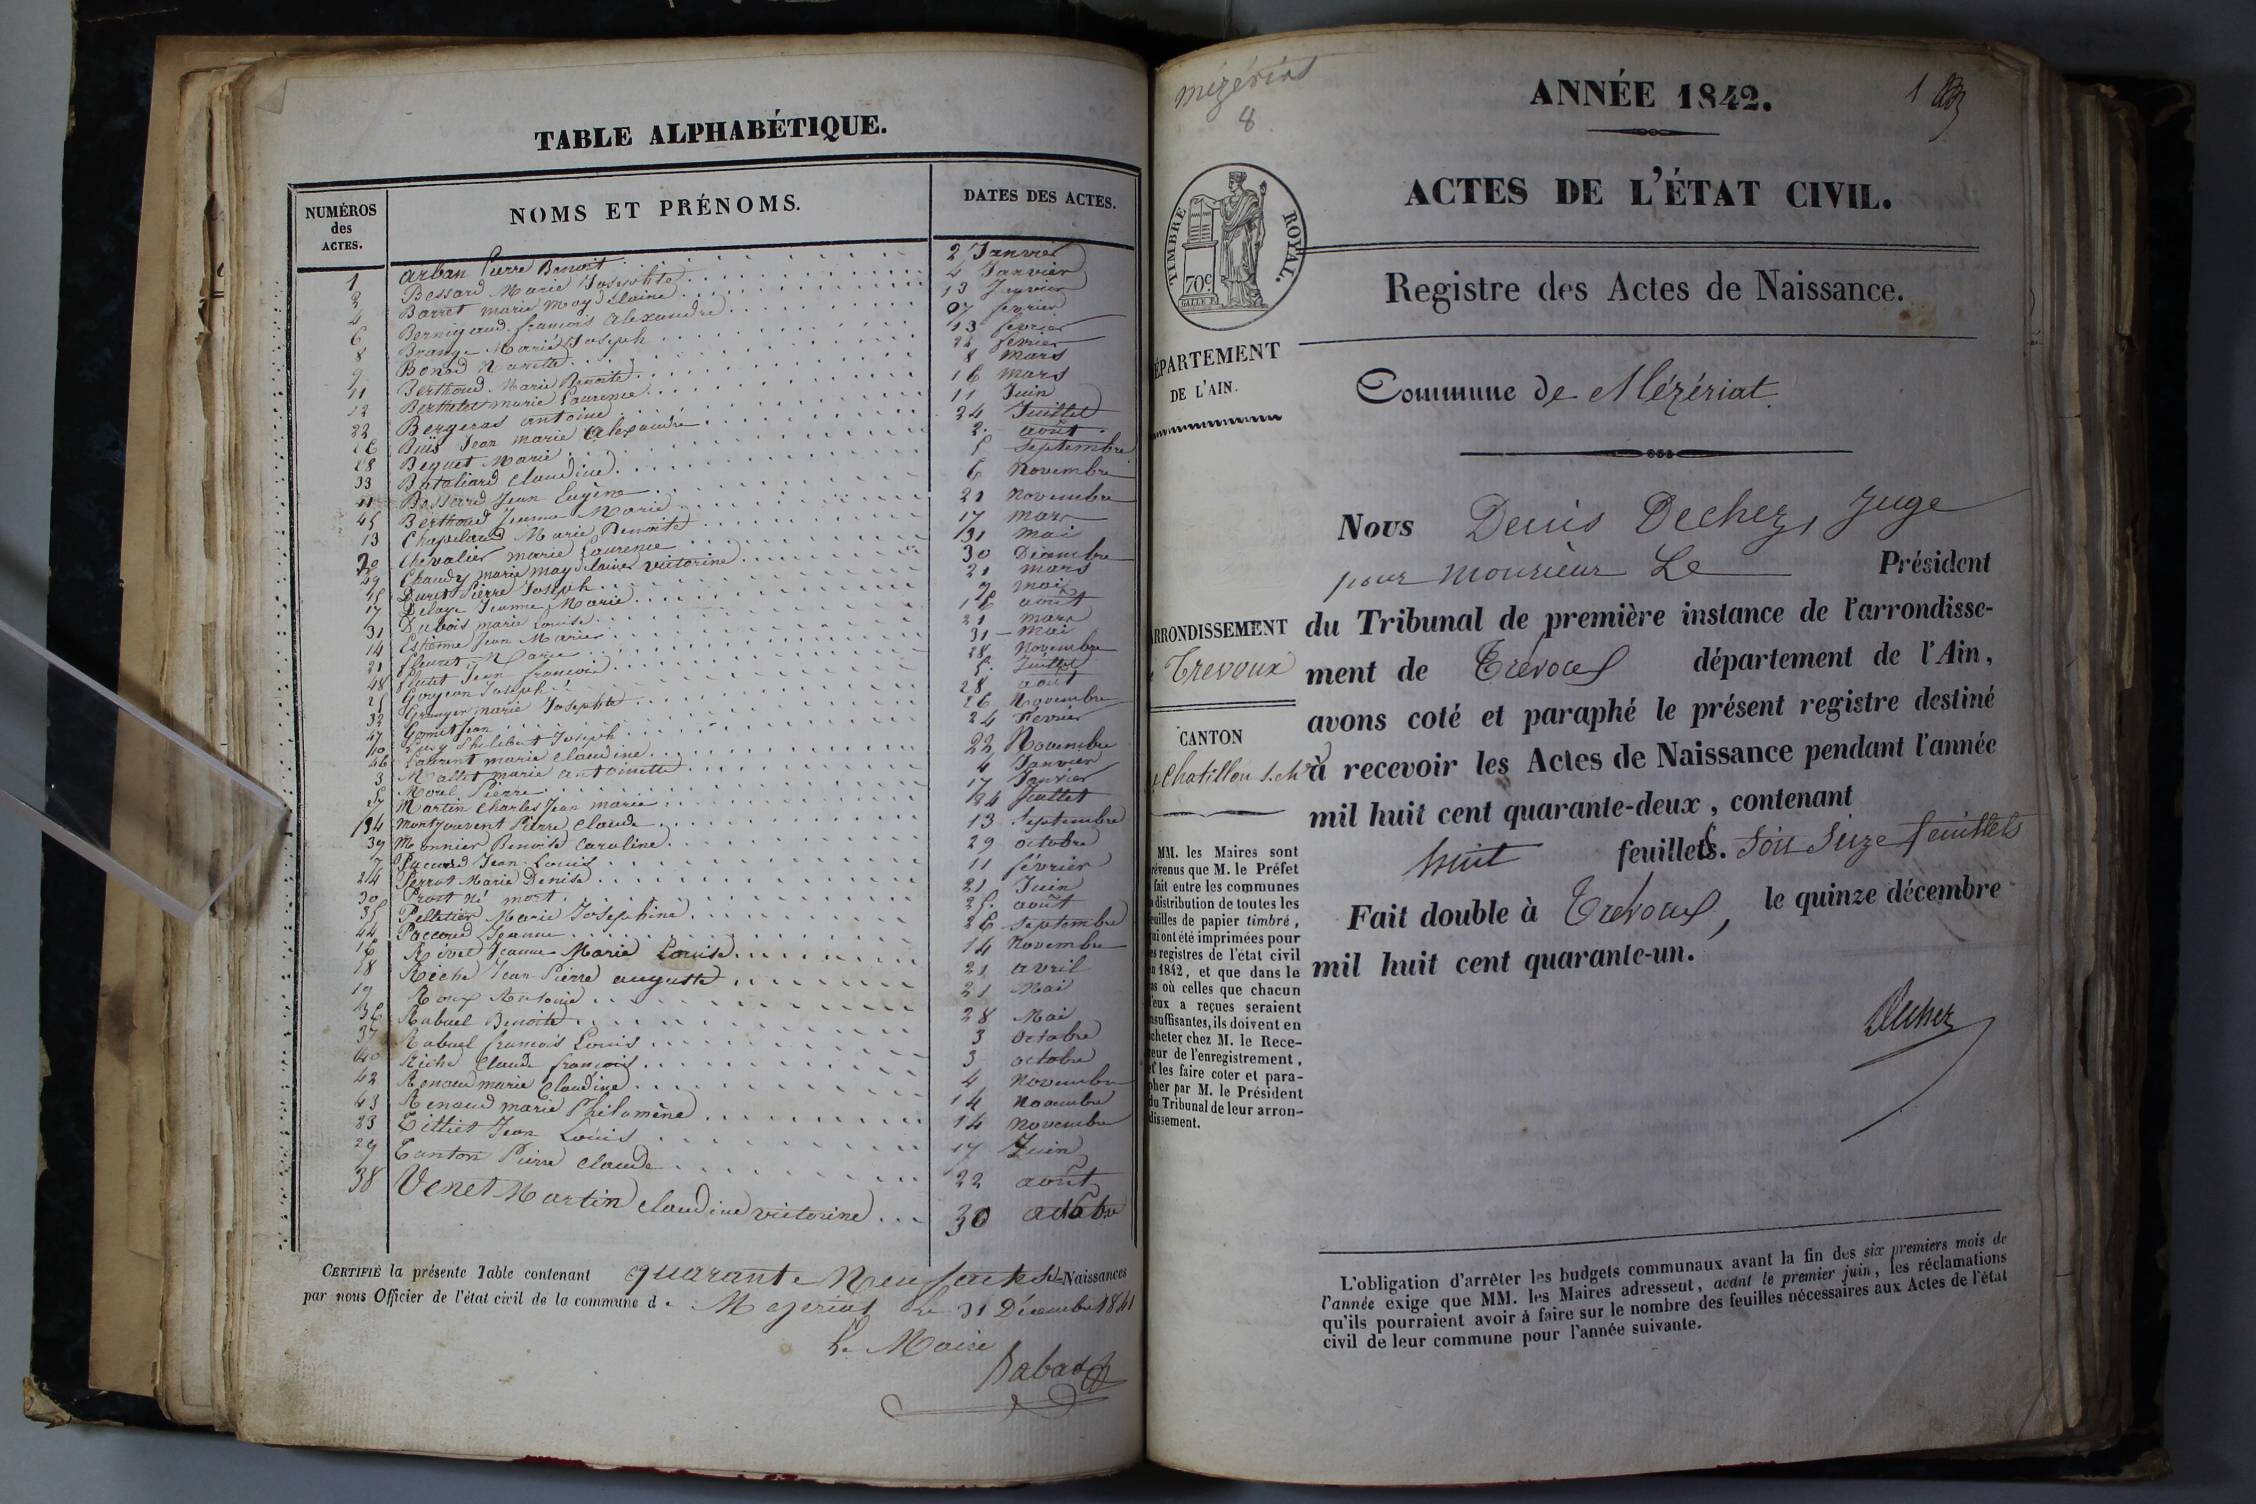 TABLE ALPHABÉTIQUE.
NUMÉROS des ACTES.
NOMS ET PRÉNOMS.
DATES DES ACTES.
1 Arban Pierre Benoit 2 Janvier
2 Bessard Marie Josephte 4 Janvier
4 Barret marie magdelaine 13 Janvier
6 Bernigaud françois Alexandre 07 fevrier
8 Brange Marie Joseph 13 fevrier
9 Bonod Mariette 22 fevrier
11 Berthoud Marie Benoite 8 mars
12 Berthelet marie Laurence 16 mars
22 Bergeras antoine 11 Juin
26 Buis Jean marie Alexandre 24 Juillet
28 Bequet Marie 2 août
33 Bataliard Claudine 5 Septembre
41 Bossard Jean Eugène 6 Novembre
45 Berthoud Jeanne Marie 21 novembre
13 Chapeland Marie Benoite 17 mars
20 Chevalier marie Laurence 31 mai
49 Chaudy marie magdelaine victorine 30 Décembre
15 Duret Pierre Joseph 21 mars
17 Delaye Jeanne Marie 7 mai
31 Dubois marie Louise 18 août
14 Estienne Jean Marie 21 mars
21 fleuret Marie 31 mai
48 flutet Jean françois 28 Novembre
25 Gonjeon Joseph 5 Juillet
32 Granger marie Josephte 28 août
47 Gomet Jean 26 Novembre
10 Luiy Philibert Joseph 24 Fevrier
46 Laurent marie Claudine 22 Novembre
3 Mallet marie antoinette 4 Janvier
5 Morel Pierre 17 Janvier
27 Martin Charles Jean marie 24 Juillet
34 Montjouvent Pierre Claude 13 Septembre
39 Monnier Benoite Caroline 29 octobre
7 Paccoud Jean Louis 11 février
24 Perrot Marie Denise 21 Juin
30 Prost né mort 25 août
35 Pelletier Marie Josephine 26 Septembre
44 Paccoud Jeanne 14 Novembre
16 Rivet Jeanne Marie Louise 21 avril
18 Riche Jean Pierre auguste 21 Mai
19 Roux Antoine 28 Mai
36 Rabuel Benoite 3 Octobre
37 Rabuel françois Louis 3 octobre
40 Riche Claude françois 4 Novembre
42 Renaud marie Claudine 14 Novembre
43 Renaud marie Philomène 14 Novembre
23 Tillier Jean Louis 17 Juin
29 Tanton Pierre Claude 22 août
38 Venet Martin Claudine victorine 30 octobre
CERTIFIÉ la présente Table contenant quarante Neuf actes de Naissances
par nous Officier de l'état civil de la commune de Mezeriat le 31 Décembre 1841
Le Maire
Mézériat
8
1
ANNÉE 1842.
ACTES DE L'ÉTAT CIVIL.
TIMBRE ROYAL.
70c
Registre des Actes de Naissance.
ÉPARTEMENT
DE L'AIN.
Commune de Mézériat
Nous Denis Dechez, Juge
pour monsieur Le Président
du Tribunal de première instance de l'arrondisse-
ment de Trévoux département de l'Ain,
avons coté et paraphé le présent registre destiné
à recevoir les Actes de Naissance pendant l'année
mil huit cent quarante-deux, contenant
huit feuillets. Soit Seize feuillets
Fait double à Trévoux, le quinze décembre
mil huit cent quarante-un.
Dechez
RRONDISSEMENT
Trevoux
CANTON
Chatillon
MM. les Maires sont
révenus que M. le Préfet
fait entre les communes
distribution de toutes les
euilles de papier timbré,
ui ont été imprimées pour
es registres de l'état civil
n 1842, et que dans le
as où celles que chacun
'eux a reçues seraient
nsuffisantes, ils doivent en
cheter chez M. le Rece-
eur de l'enregistrement,
et les faire coter et para-
pher par M. le Président
du Tribunal de leur arron-
dissement.
L'obligation d'arrêter les budgets communaux avant la fin des six premiers mois de
l'année exige que MM. les Maires adressent, avant le premier juin, les réclamations
qu'ils pourraient avoir à faire sur le nombre des feuilles nécessaires aux Actes de l'état
civil de leur commune pour l'année suivante.